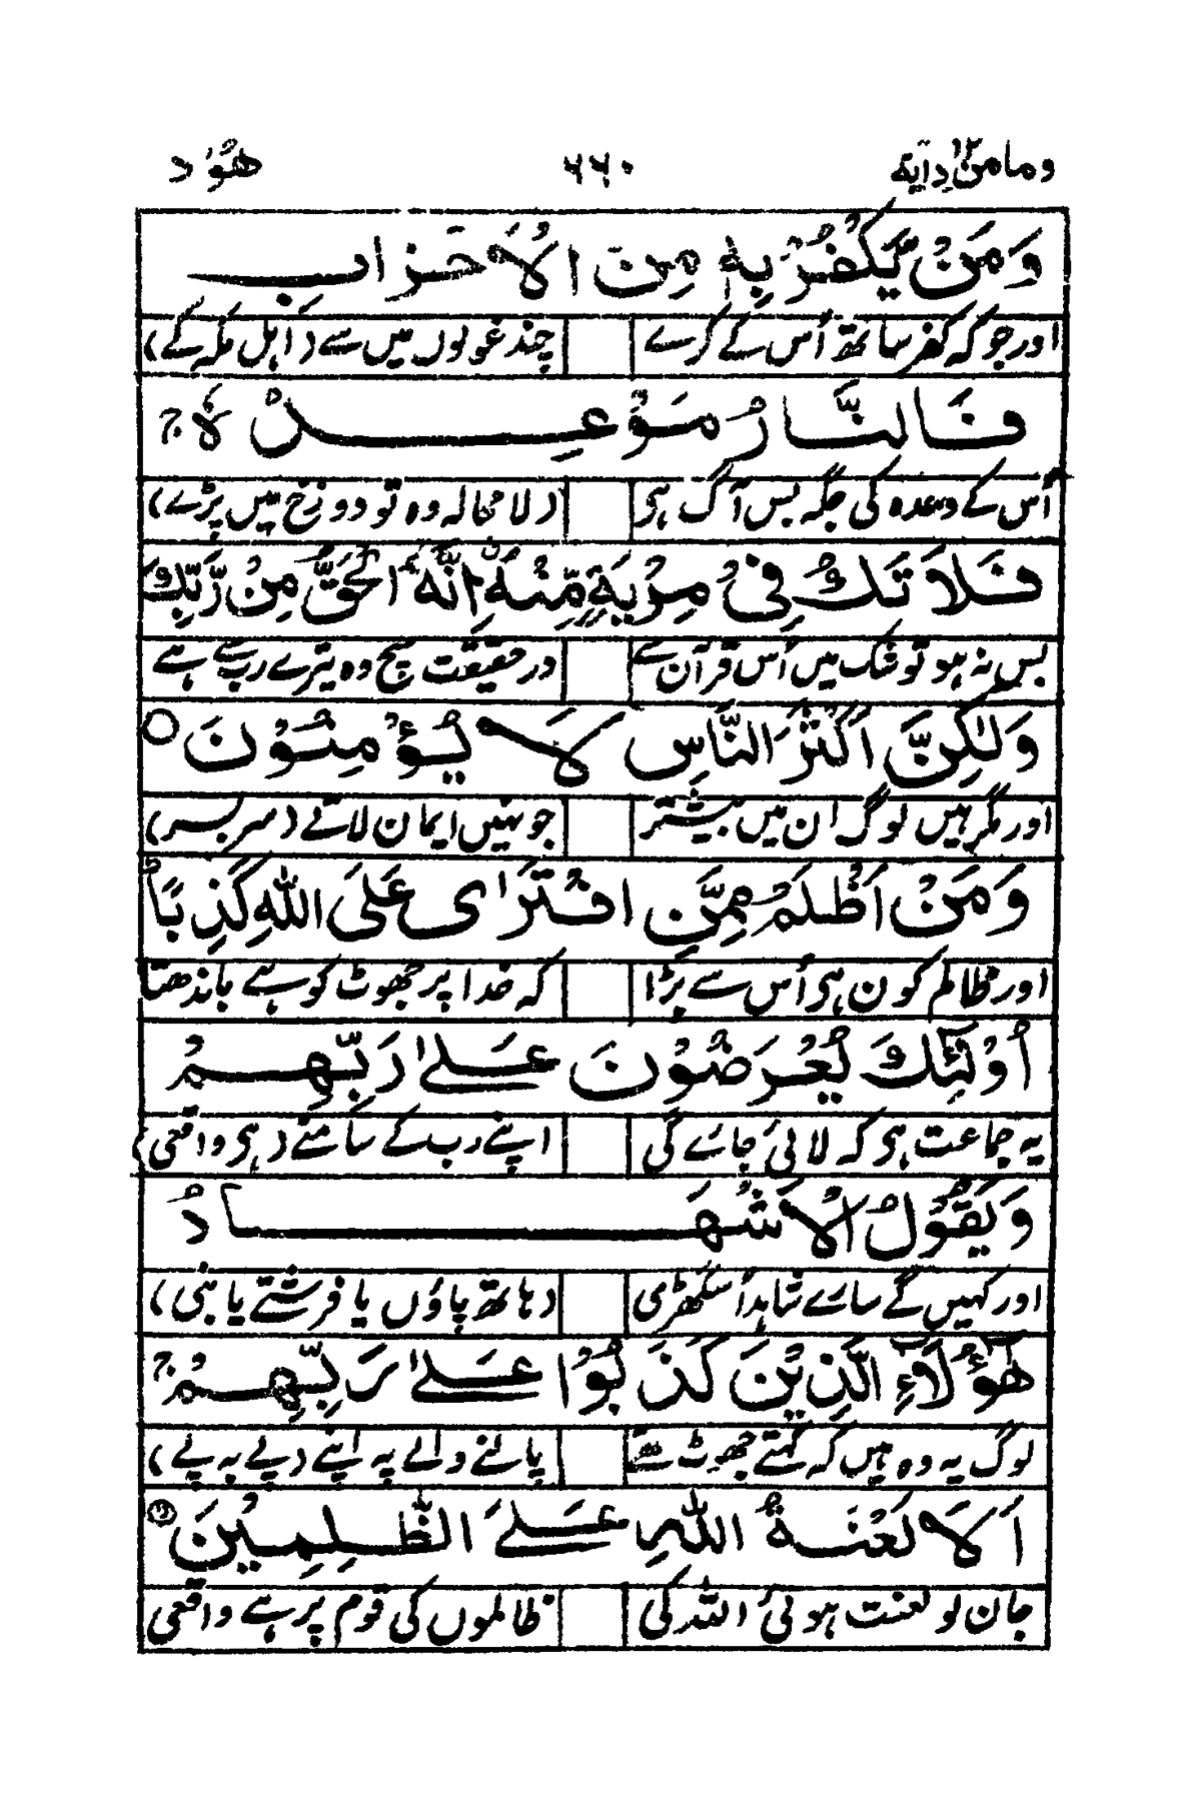 ومامن دآبة ١٢ ٦٦٠ هُوْد
وَمَنْ يَّكْفُرْ بِهٖ مِنَ الْاَحْزَابِ
اور جو کہ کفر ساتھ اُس کے کرے چند غولوں میں سے (اہل مکہ کے)
فَالنَّارُ مَوْعِدُهٗ ج
اُس کے وعدہ کی جگہ بس آگ ہی (لا محالہ وہ تو دوزخ میں پڑے)
فَلَا تَكُ فِيْ مِرْيَةٍ مِّنْهُ اِنَّهُ الْحَقُّ مِنْ رَّبِّكَ
بس نہ ہو تو شک میں اُس قرآن سے درحقیقت سچ وہ تیرے رب سے ہے
وَلٰكِنَّ اَكْثَرَ النَّاسِ لَا يُؤْمِنُوْنَ ○
اور مگر ہیں لوگ ان میں بیشتر جو نہیں ایمان لاتے (سر بسر)
وَمَنْ اَظْلَمُ مِمَّنِ افْتَرٰى عَلَى اللّٰهِ كَذِبًا ط
اور ظالم کون ہی اُس سے بڑا کہ خدا پر جھوٹ کو ہے باندھتا
اُولٰٓئِكَ يُعْرَضُوْنَ عَلٰى رَبِّهِمْ
یہ جماعت ہی کہ لائی جائے گی اپنے رب کے سامنے (ہی واقعی)
وَيَقُوْلُ الْاَشْهَادُ
اور کہیں گے سارے شاہد اُس گھڑی (ہاتھ پاؤں یا فرشتے یا نبی)
هٰٓؤُلَآءِ الَّذِيْنَ كَذَبُوْا عَلٰى رَبِّهِمْ ج
لوگ یہ وہ ہیں کہ کہتے جھوٹ تھے پالنے والے پہ اپنے (پے بہ پے)
اَلَا لَعْنَةُ اللّٰهِ عَلَى الظّٰلِمِيْنَ
جان لو لعنت ہوئی اللہ کی ظالموں کی قوم پر ہے واقعی